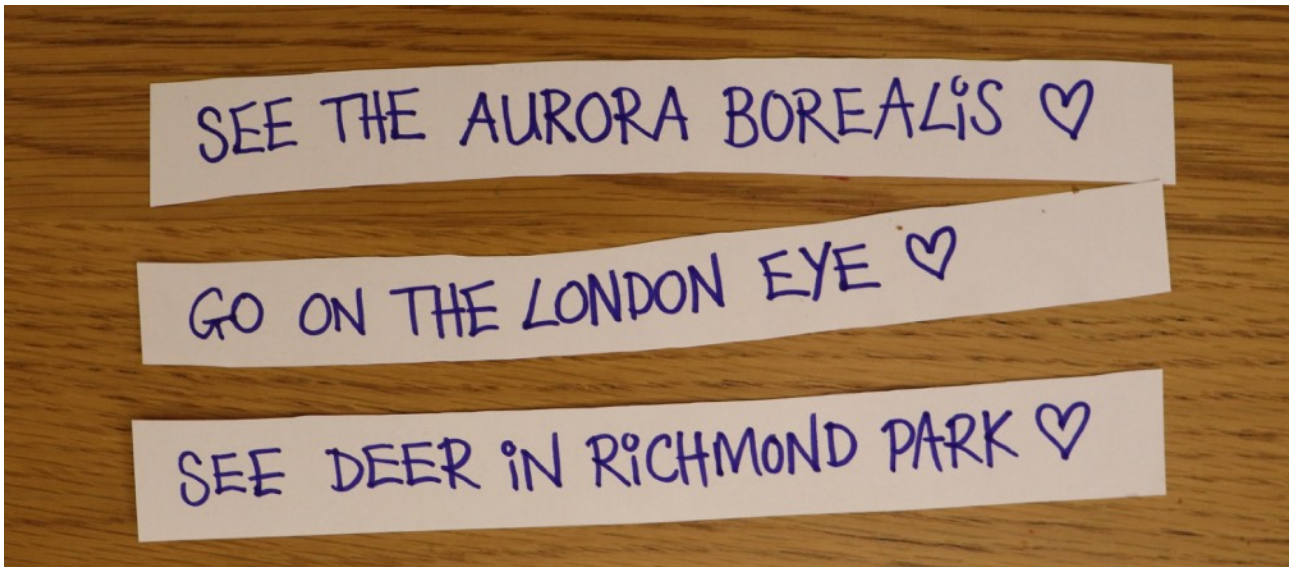 SEE THE AURORA BOREALiS ♡
GO ON THE LONDON EYE ♡
SEE DEER iN RiCHMOND PARK ♡